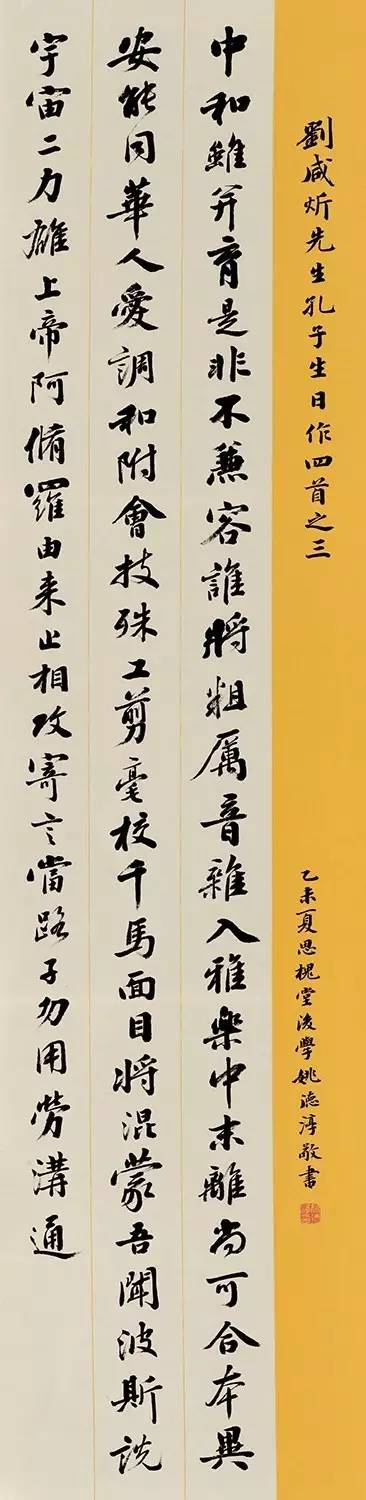 劉咸炘先生孔子生日作四首之三
乙未夏思槐堂後學姚德淳敬書
中和雖并育是非不兼容誰將粗厲音雜入雅樂中末離尚可合本異
安能同華人愛調和附會技殊工剪毫校千馬面目將混蒙吾聞波斯說
宇宙二力雄上帝阿脩羅由来止相攻寄言當路子勿用勞溝通